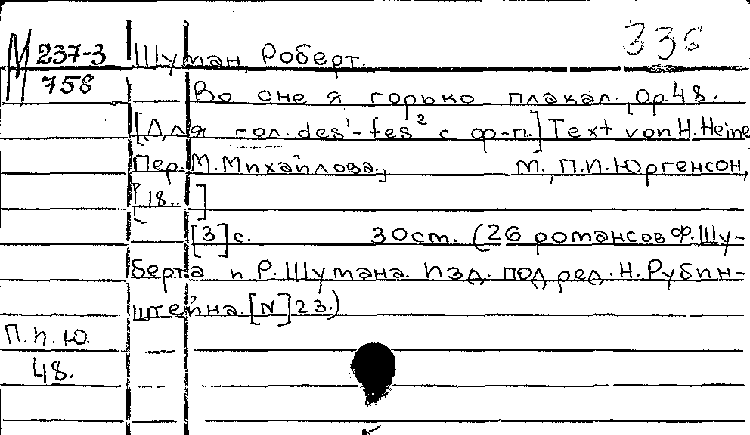 336
М 237-3
758
Шуман, Роберт.
Во сне я горько плакал. Op.48.
[Для гол. des¹-fes² с ф-п.] Text von H. Heine
Пер. М. Михайлова, М., П.И. Юргенсон,
[18..]
[3] с. 30 cm. (26 романсов Ф. Шу-
берта и Р. Шумана. Изд. под ред. Н. Рубин-
штейна. [N] 23.)
П. И. Ю.
48.